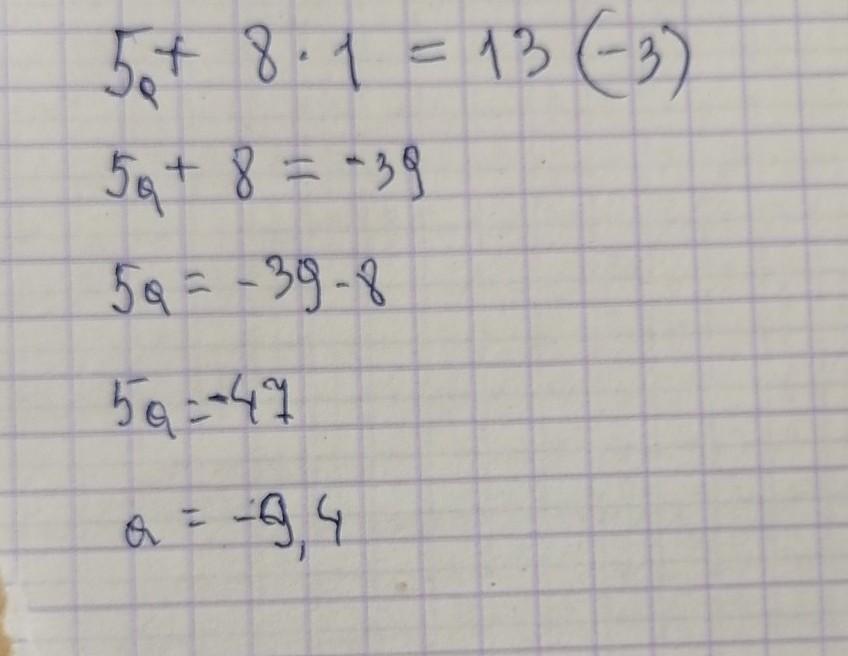 5a + 8 · 1 = 13 (-3)
5a + 8 = -39
5a = -39 - 8
5a = -47
a = -9,4